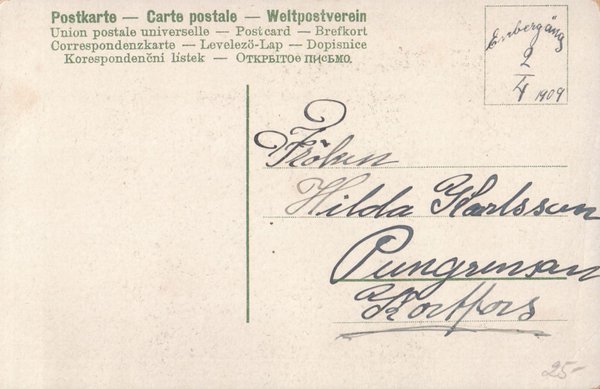 Postkarte — Carte postale — Weltpostverein
Union postale universelle — Postcard — Brefkort
Correspondenzkarte — Levelező-Lap — Dopisnice
Korespondenční lístek — Открытое письмо.
2/4 1909
Fröken
Hilda Karlsson
Pungrensan
Kortfors
25-